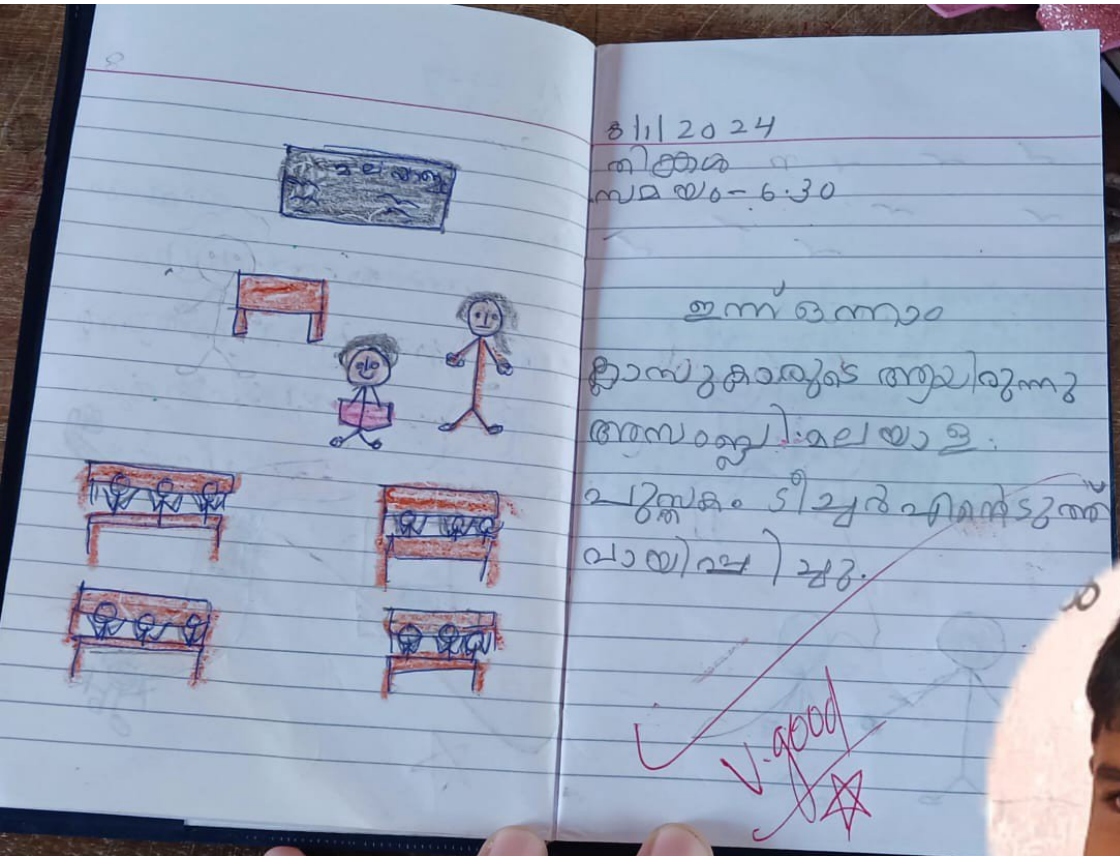 മലയാളം
8/1/2024
തിങ്കൾ
സമയം - 6.30
ഇന്ന് ഒന്നാം
ക്ലാസുകാരുടെ ആയിരുന്നു
അസംബ്ലി. മലയാള
പുസ്തകം ടീച്ചർ എന്റെടുത്ത്
വായിപ്പിച്ചു.
V.good